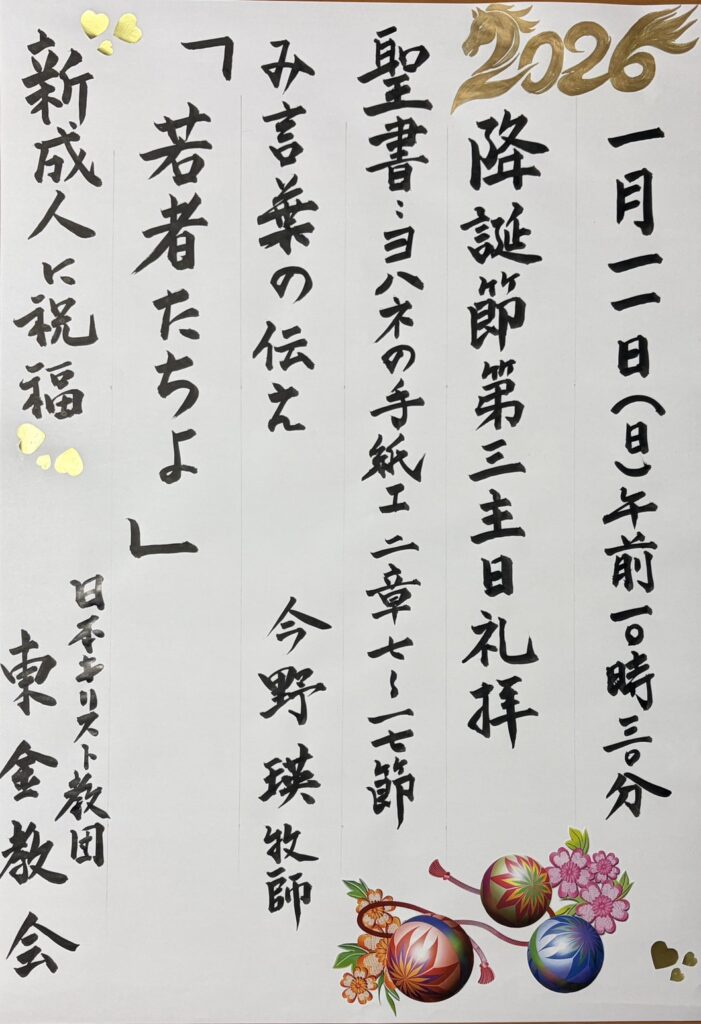 2026
一月一一日(日)午前一〇時三〇分
降誕節第三主日礼拝
聖書:ヨハネの手紙Ⅰ 二章七~一七節
み言葉の伝え 今野瑛牧師
「若者たちよ」
新成人に祝福
日本キリスト教団
東金教会